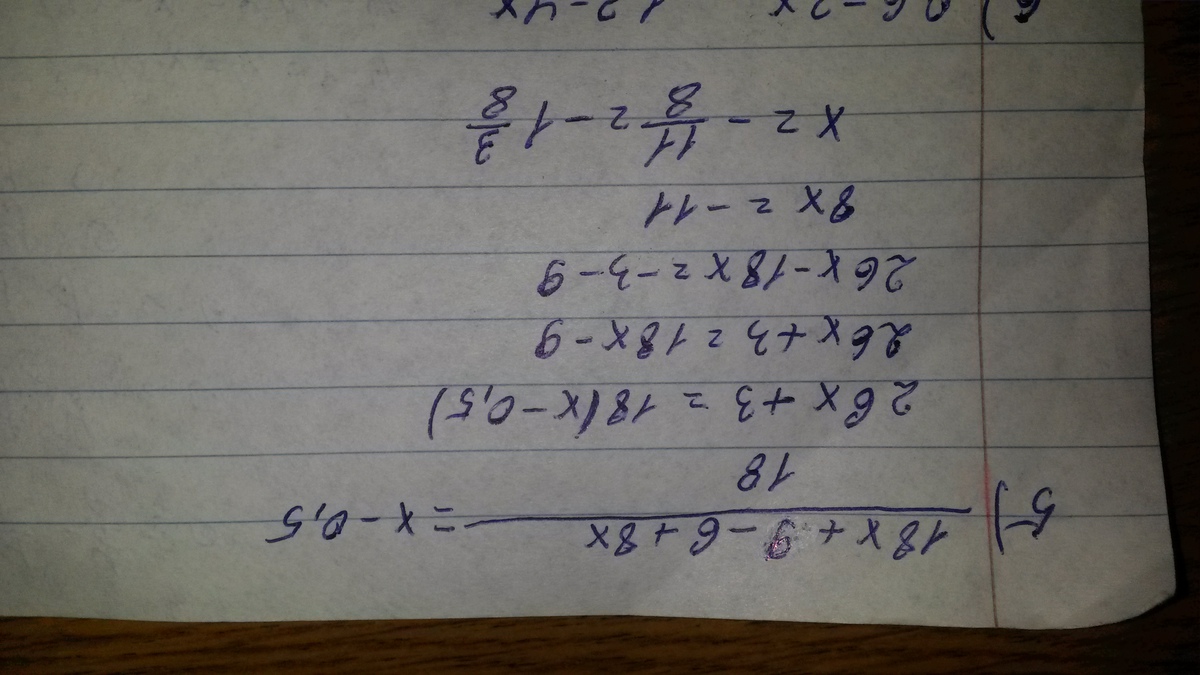 5) (18x + 9 - 6 + 8x)/18 = x - 0,5
26x + 3 = 18(x - 0,5)
26x + 3 = 18x - 9
26x - 18x = -3 - 9
8x = -11
x = - 11/8 = -1 3/8
6)